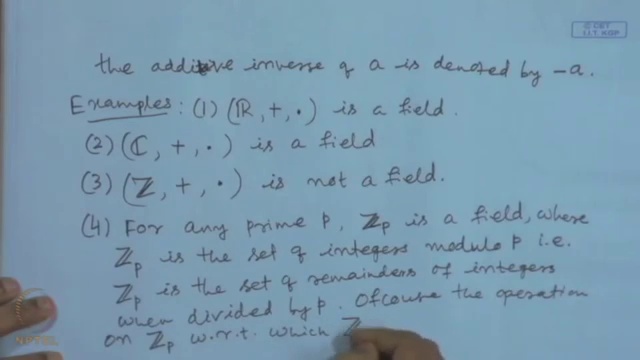 © CET
I.I.T. KGP
the additive inverse of a is denoted by -a.
Examples: (1) (ℝ, +, ·) is a field.
(2) (ℂ, +, ·) is a field
(3) (ℤ, +, ·) is not a field.
(4) For any prime p, ℤp is a field, where
ℤp is the set of integers modulo p i.e.
ℤp is the set of remainders of integers
when divided by p. Ofcouse the operation
on ℤp w.r.t. which ℤ
NPTEL